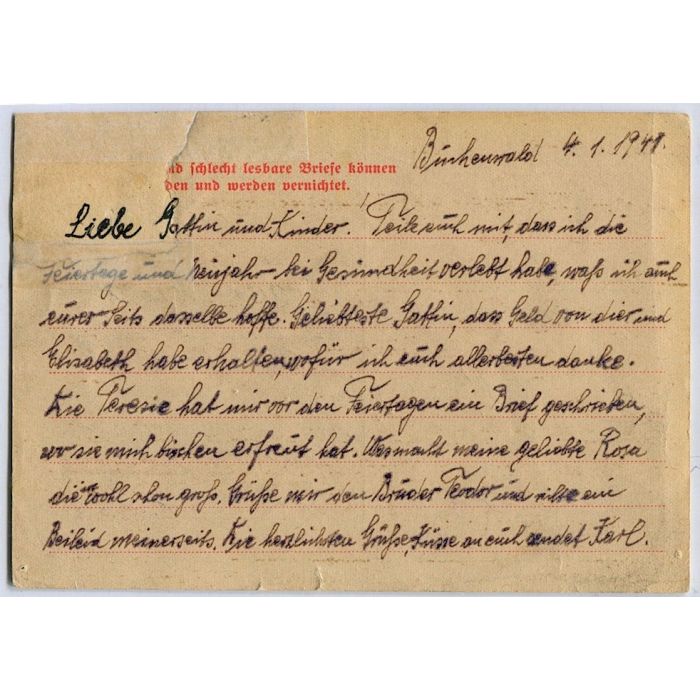 Buchenwald 4.1.1941.
nd schlecht lesbare Briefe können
den und werden vernichtet.
Liebe Gattin und Kinder. Teile euch mit, dass ich die
Feiertage und Neujahr bei Gesundheit verlebt habe, waß ich auch
eurer Seits dasselbe hoffe. Geliebteste Gattin, dass Geld von dier und
Elisabeth habe erhalten, wofür ich euch allerbesten danke.
Die Teresie hat mir vor den Feiertagen ein Brief geschrieben,
wo sie mich bischen erfreut hat. Was macht meine geliebte Rosa
die wohl schon groß. Grüße mir den Bruder Teodor und ein
Beileid meinerseits. Die herzlichsten Grüße, Küsse an euch sendet Karl.